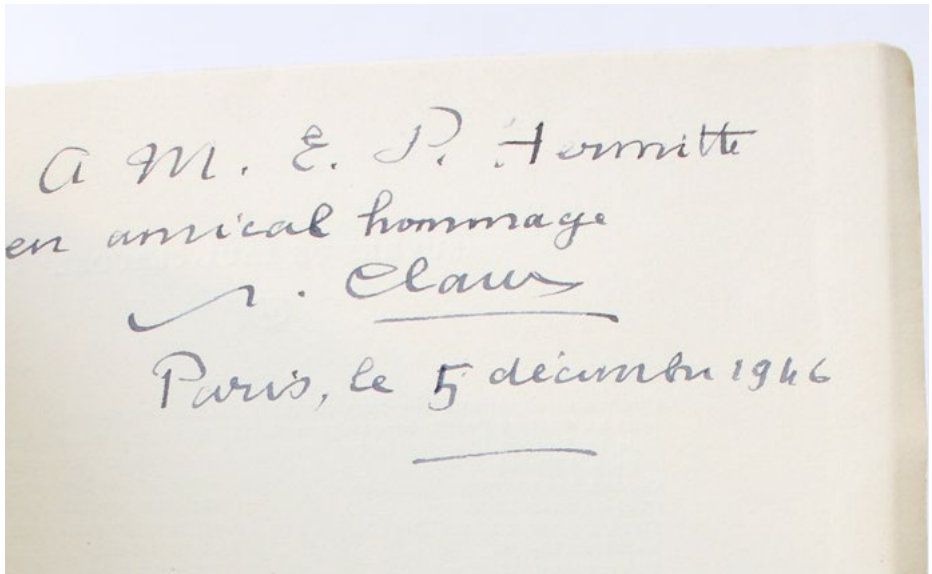 A M. E. P. Hermitte
en amical hommage
Paris, le 5 décembre 1946